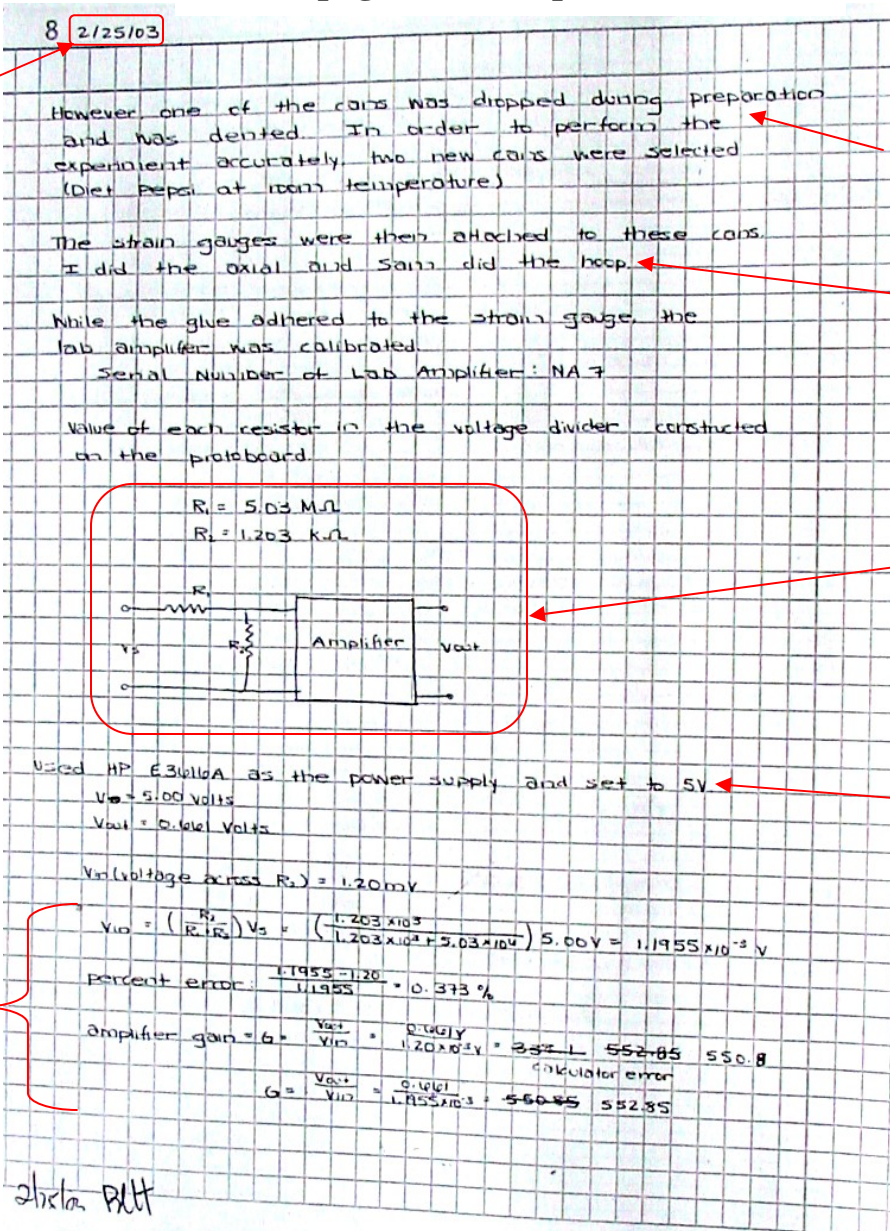 8 2/25/03
However, one of the cans was dropped during preparation
and was dented. In order to perform the
experiment accurately, two new cans were selected
(Diet Pepsi at room temperature)
The strain gauges were then attached to these cans.
I did the axial and Sam did the hoop.
While the glue adhered to the strain gauge, the
lab amplifer was calibrated.
Serial Number of Lab Amplifier: NA 7
Value of each resistor in the voltage divider constructed
on the protoboard.
R₁ = 5.03 MΩ
R₂ = 1.203 KΩ
R₁
Vs R₂ Amplifier Vout
Used HP E3616A as the power supply and set to 5V
= 5.00 volts
Vout = 0.661 Volts
Vin (voltage across R₂) = 1.20mV
Vin = (R₂/(R₁+R₂)) Vs = (1.203 x10³/(1.203 x10³ + 5.03 x10⁶)) 5.00V = 1.1955 x10⁻³ V
percent error: (1.1955 - 1.20)/1.1955 = 0.373 %
amplifier gain = G = Vout/Vin = 0.661V/1.20x10⁻³V = 552.85 550.8
calculator error
G = Vout/Vin = 0.661/1.1955x10⁻³ = 550.85 552.85